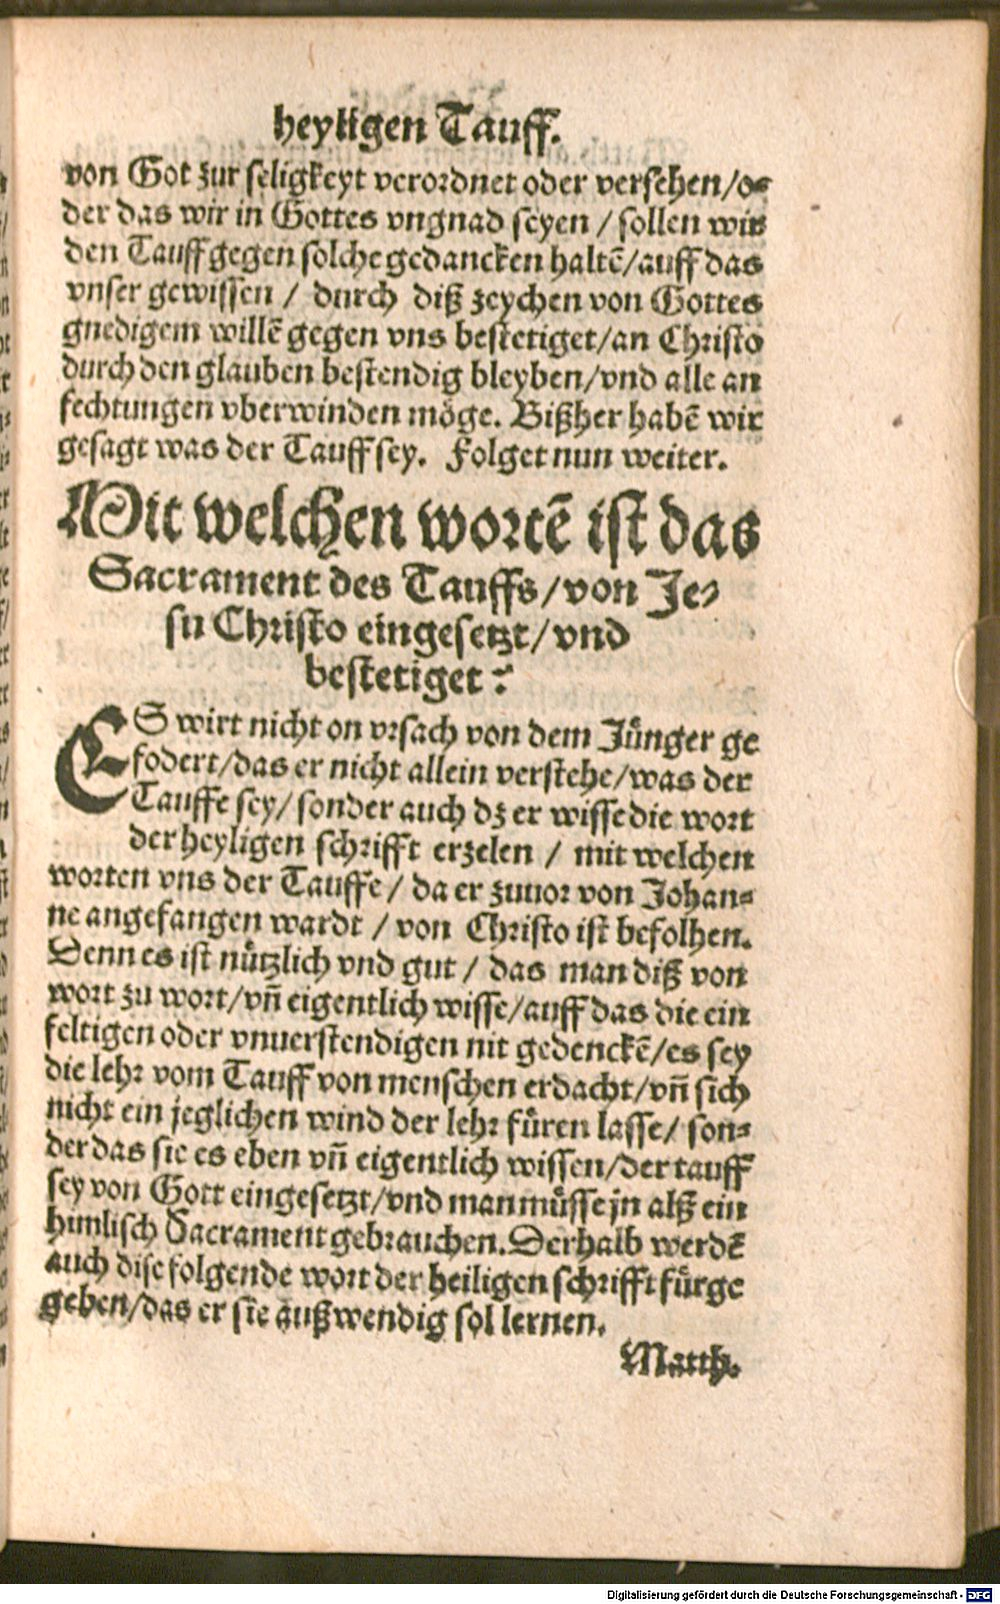 heyligen Tauff.
von Got zur seligkeyt verordnet oder versehen/o⸗
der das wir in Gottes vngnad seyen / sollen wir
den Tauff gegen solche gedancken haltē/auff das
vnser gewissen / durch diß zeychen von Gottes
gnedigem willē gegen vns bestetiget/an Christo
durch den glauben bestendig bleyben/vnd alle an
fechtungen vberwinden möge. Bißher habē wir
gesagt was der Tauff sey. Folget nun weiter.
Mit welchen wortē ist das
Sacrament des Tauffs/von Je⸗
su Christo eingesetzt/vnd
bestetiget?
ES wirt nicht on vrsach von dem Jünger ge
fodert/das er nicht allein verstehe/was der
Tauffe sey/ sonder auch dz er wisse die wort
der heyligen schrifft erzelen / mit welchen
worten vns der Tauffe / da er zuuor von Johan⸗
ne angefangen wardt / von Christo ist befolhen.
Denn es ist nützlich vnd gut / das man diß von
wort zu wort/vñ eigentlich wisse/auff das die ein
feltigen oder vnuerstendigen nit gedenckē/es sey
die lehr vom Tauff von menschen erdacht/vñ sich
nicht ein jeglichen wind der lehr füren lasse/ son⸗
der das sie es eben vñ eigentlich wissen/der tauff
sey von Gott eingesetzt/vnd man müsse jn alß ein
himlisch Sacrament gebrauchen. Derhalb werdē
auch dise folgende wort der heiligen schrifft fürge
geben/das er sie außwendig sol lernen.
Matth.
Digitalisierung gefördert durch die Deutsche Forschungsgemeinschaft - DFG